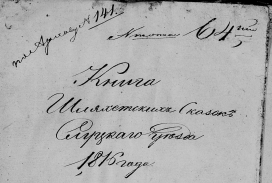 по Архиву № 141.
64
Книга
Шляхетскихъ Сказокъ
Слуцкаго Уѣзда
1816 года